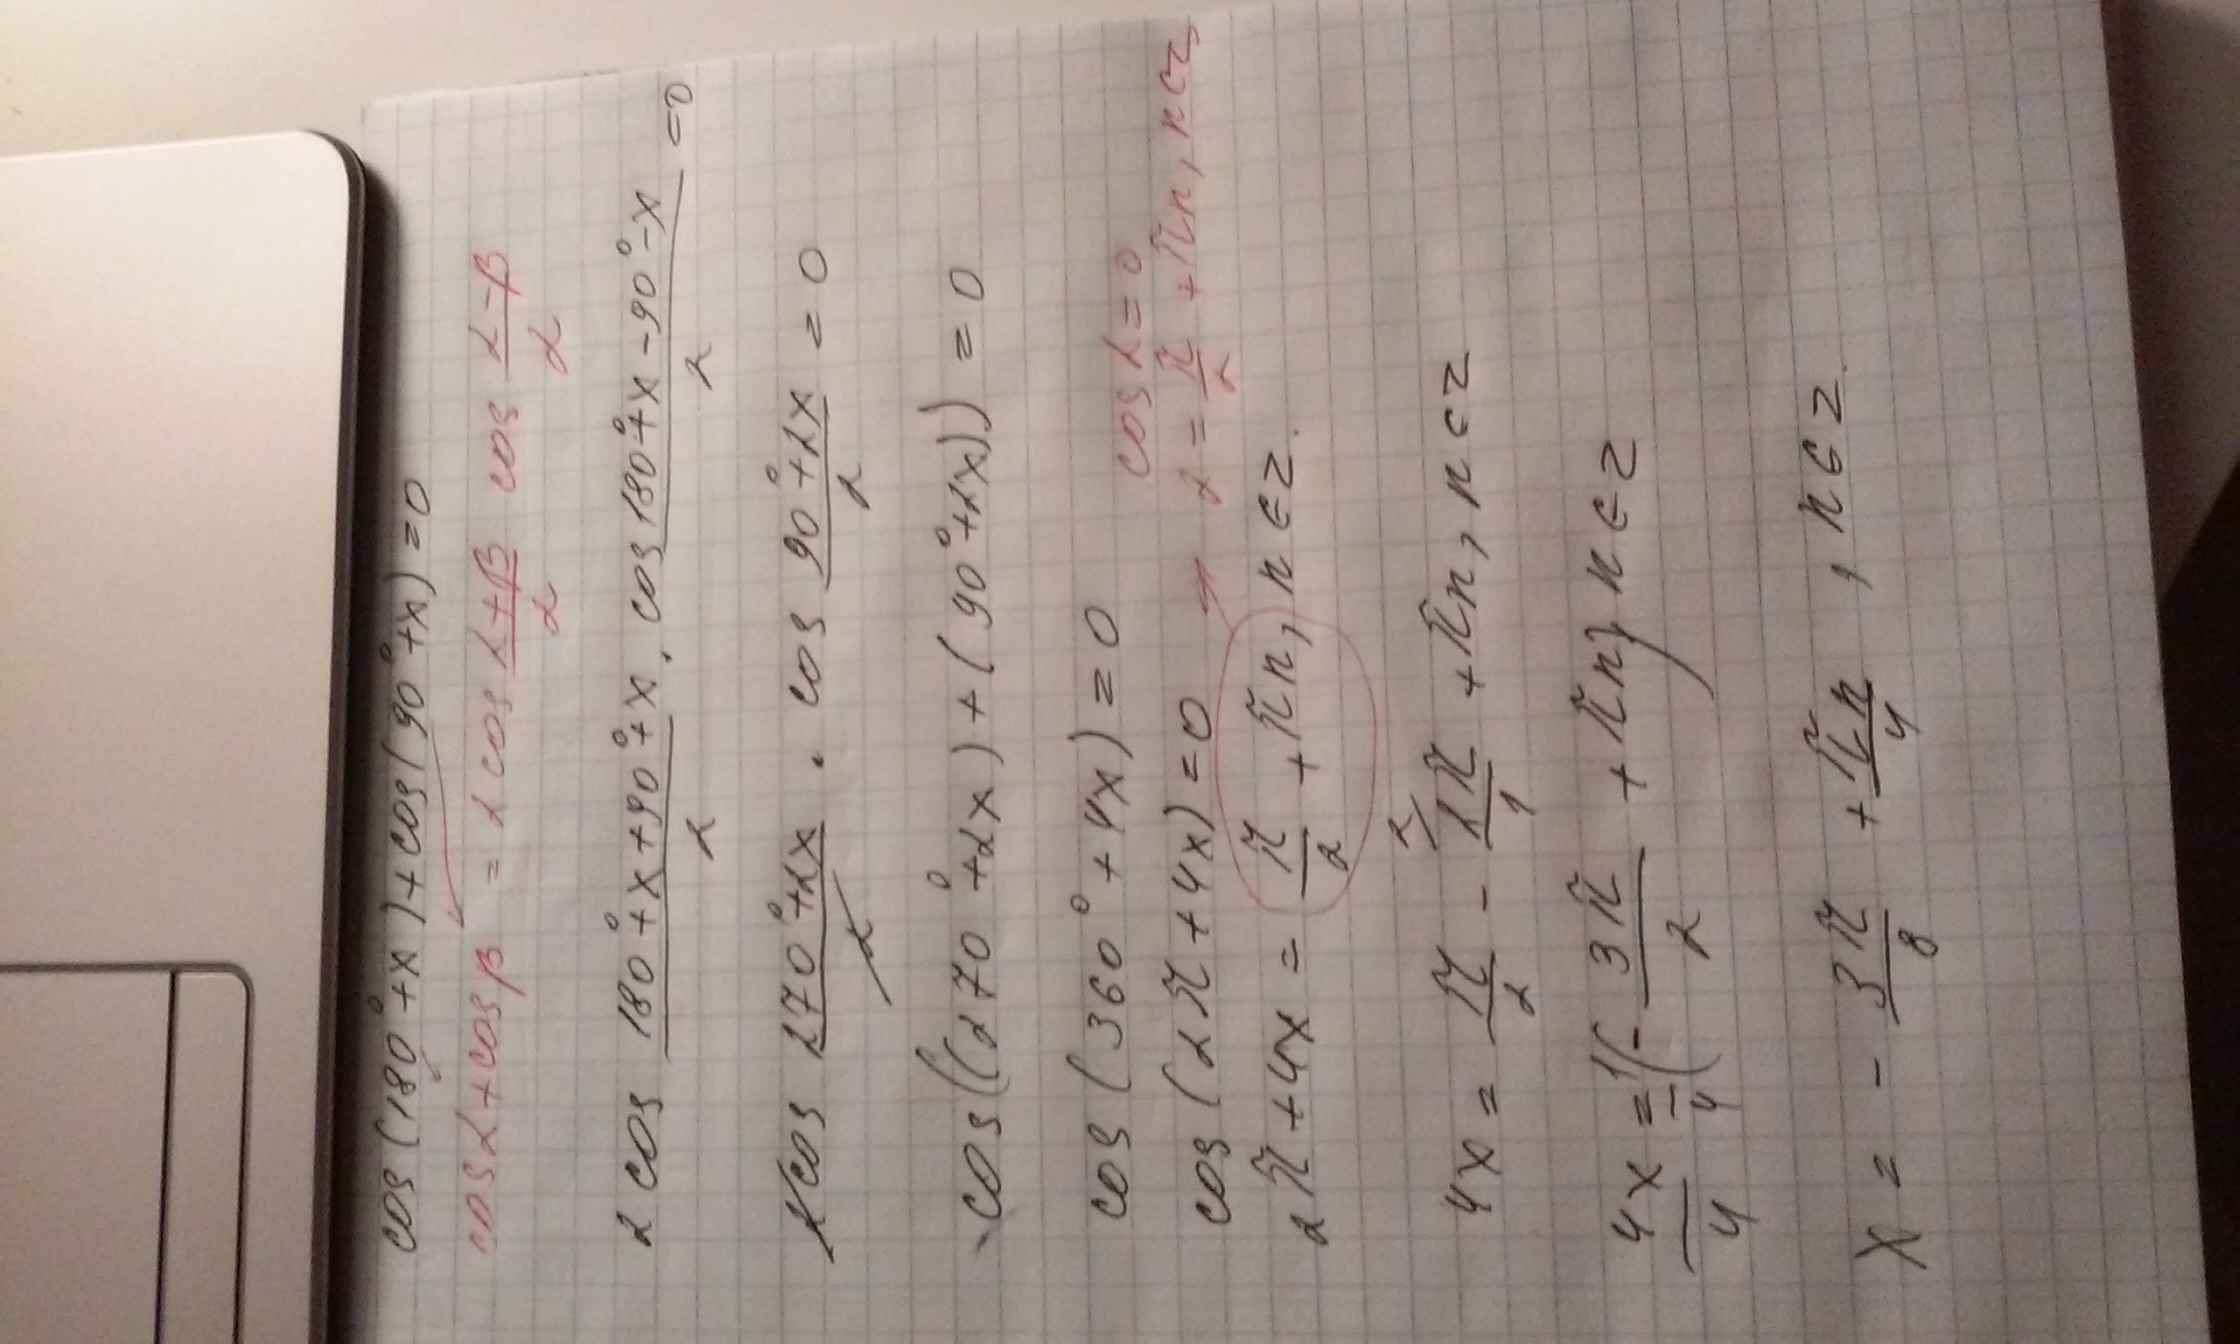 cos(180°+x)+cos(90°+x)=0
cosα+cosβ = 2cos (α+β)/2 cos (α-β)/2
2 cos (180°+x+90°+x)/2 · cos (180°+x-90°-x)/2 =0
2cos (270°+2x)/2 · cos (90°+2x)/2 = 0
cos((270°+2x)+(90°+2x))=0
cos(360°+4x)=0
cosα=0
cos(2π+4x)=0
α = π/2 + πn, n∈z
2π+4x = π/2 + πn, n∈z.
4x = π/2 - 2π/1 + πn, n∈z
4x/4 = 1/4(-3π/2 + πn) n∈z
x = - 3π/8 + πn/4, n∈z.